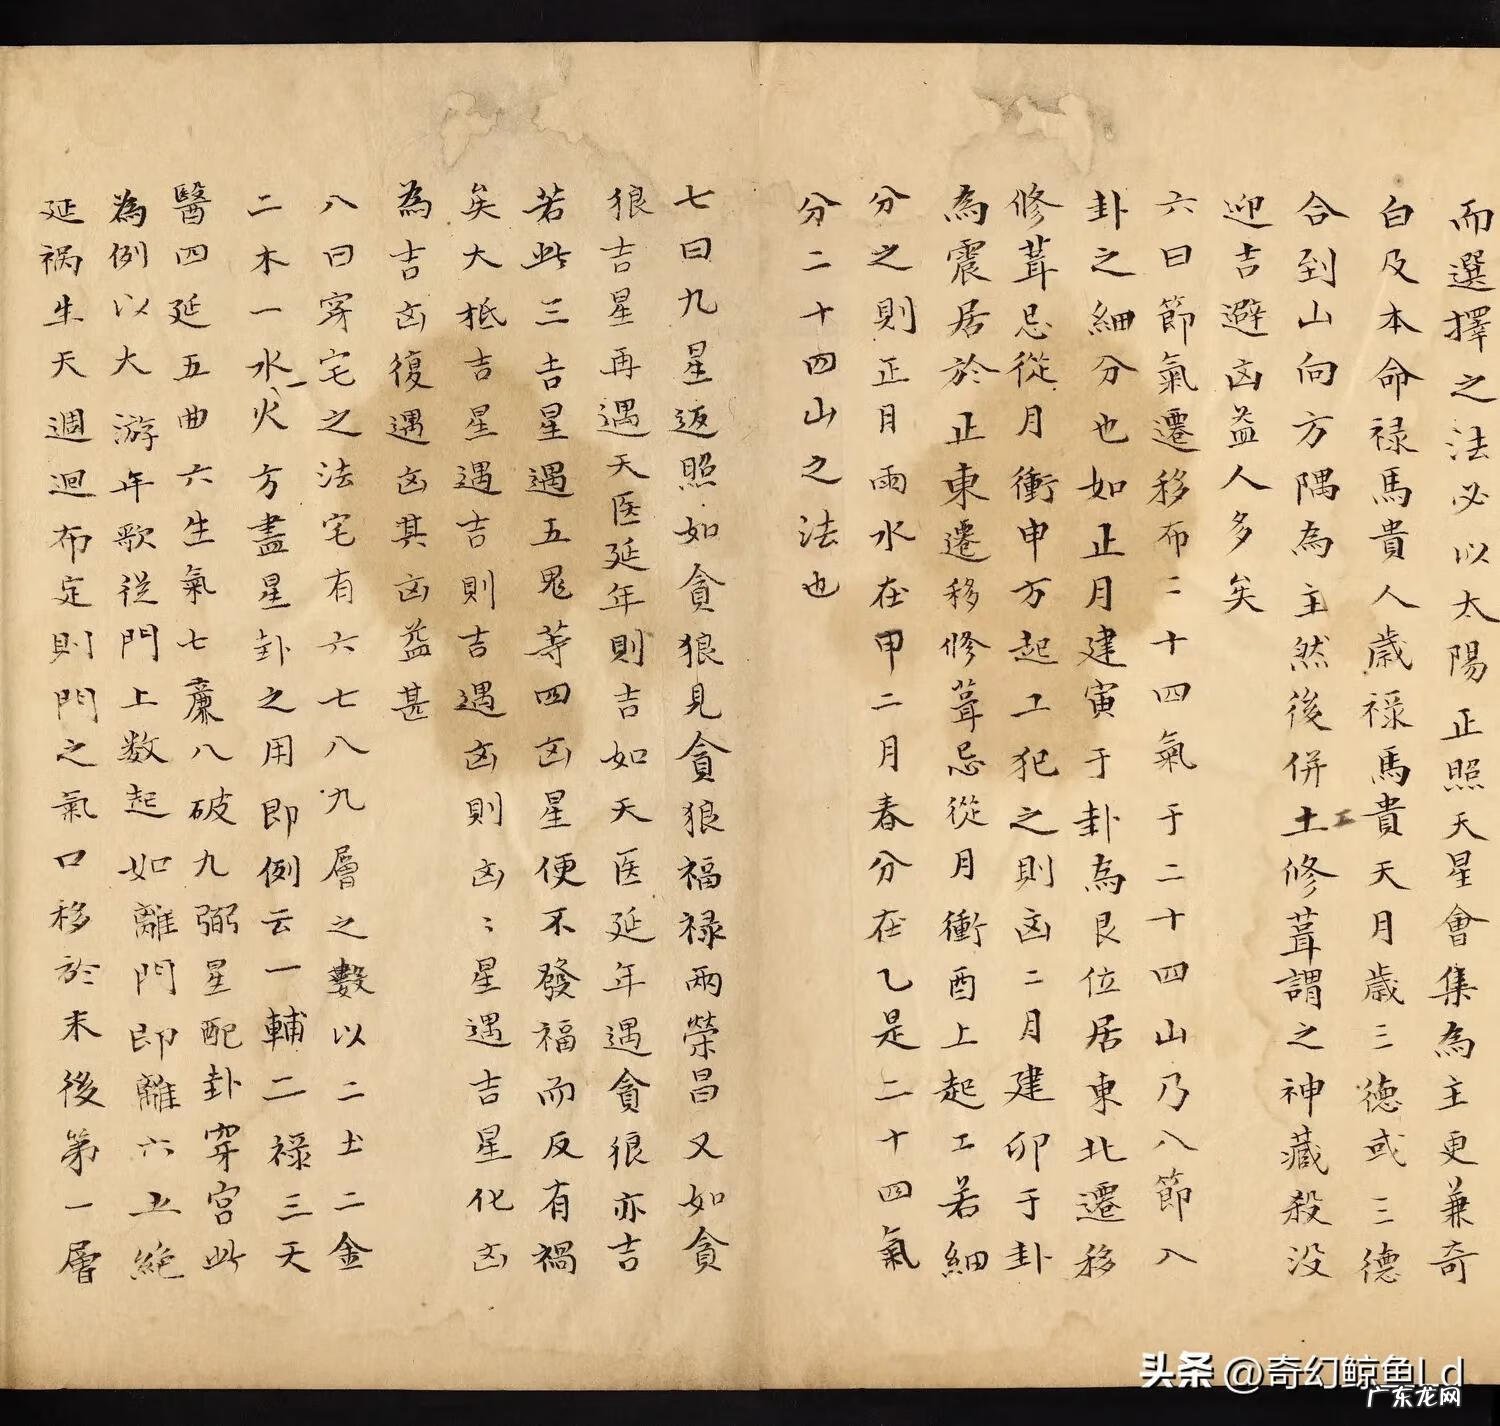 而選擇之法必以太陽正照天星會集為主更兼奇
白及本命禄馬貴人歳禄馬貴天月歳三德或三德
合到山向方隅為主然後併土工修葺謂之神藏殺没
迎吉避凶益人多矣
六曰節氣遷移布二十四氣于二十四山乃八節入
卦之細分也如正月建寅于卦為艮位居東北遷移
修葺忌從月衝申方起工犯之則凶二月建卯于卦
為震居於正東遷移修葺忌從月衝酉上起工若細
分之則正月雨水在甲二月春分在乙是二十四氣
分二十四山之法也
七曰九星返照如貪狼見貪狼福禄兩榮昌又如貪
狼吉星再遇天医延年則吉如天医延年遇貪狼亦吉
若此三吉星遇五鬼等四凶星便不發福而反有禍
矣大抵吉星遇吉則吉遇凶則凶〻星遇吉星化凶
為吉凶復遇凶其凶益甚
八曰穿宅之法宅有六七八九層之數以二土二金
二木一水一火方盡星卦之用即例云一輔二禄三天
醫四延五曲六生氣七廉八破九弼星配卦穿宮此
為例以大游年歌從門上数起如離門即離六五絶
延禍生天週迴布定則門之氣口移於末後第一層
头条 @奇幻鲸鱼Ld
广东龙网